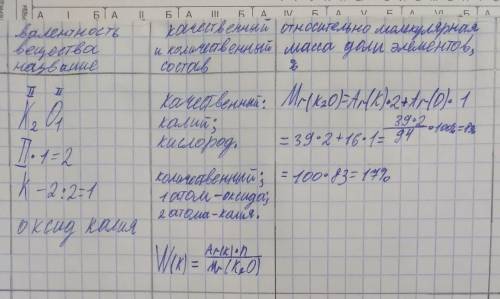 А I Б А II Б А III Б А IV Б А V Б А VI Б А
валентность
вещества
название
II II
K₂O₁
II·1=2
K-2:2=1
оксид калия
качественный
и количественный
состав
качественный:
калий;
кислород.
количественный;
1 атом-оксида;
2 атома-калия.
W(K)=Ar(K)·n/Mr(K₂O)
относительно молекулярная
масса доли элементов,
Mr(K₂O)=Ar(K)·2+Ar(O)·1
=39·2+16·1=39·2/94·100%=8%
=100·83=17%